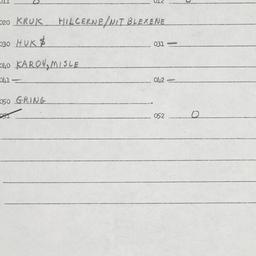 011 012
020 KRUK HILCERNE/NIT BLEXENE
030 HUK $ 031 —
060 KAROV, MISLE
061 — 062 —
050 GRING
051 052 O